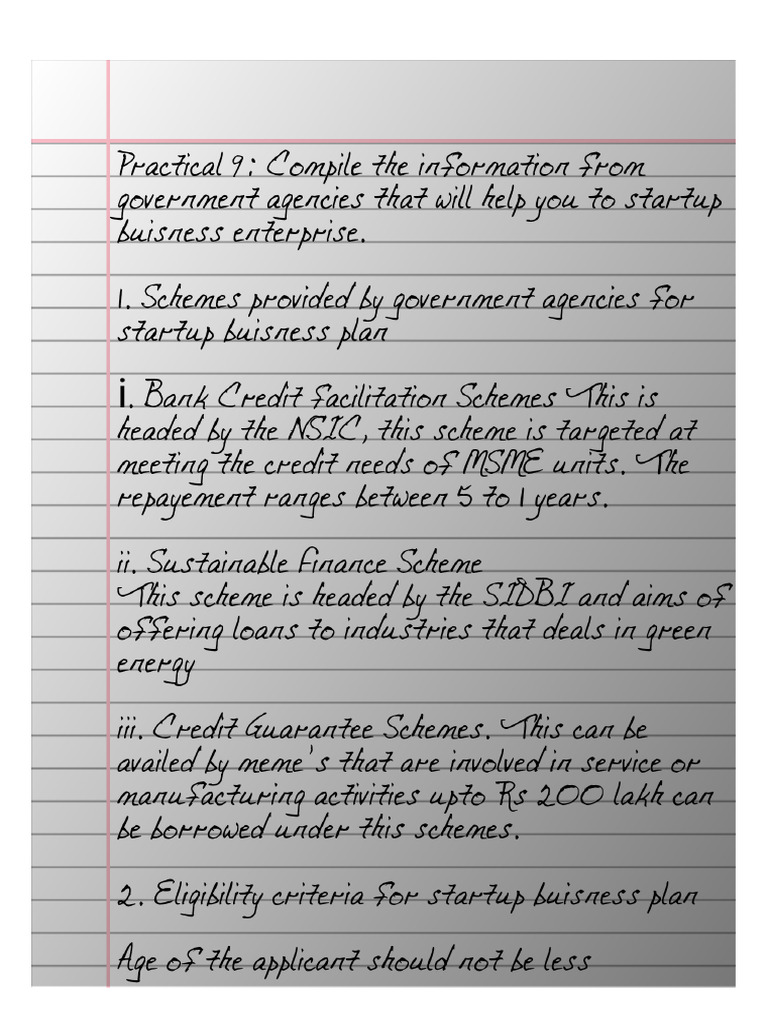 Practical 9: Compile the information from
government agencies that will help you to startup
buisness enterprise.
1. Schemes provided by government agencies for
startup buisness plan
i. Bank Credit Facilitation Schemes This is
headed by the NSIC, this scheme is targeted at
meeting the credit needs of MSME units. The
repayement ranges between 5 to 1 years.
ii. Sustainable Finance Scheme
This scheme is headed by the SIDBI and aims of
offering loans to industries that deals in green
energy
iii. Credit Guarantee Schemes. This can be
availed by meme's that are involved in service or
manufacturing activities upto Rs 200 lakh can
be borrowed under this schemes.
2. Eligibility criteria for startup buisness plan
Age of the applicant should not be less